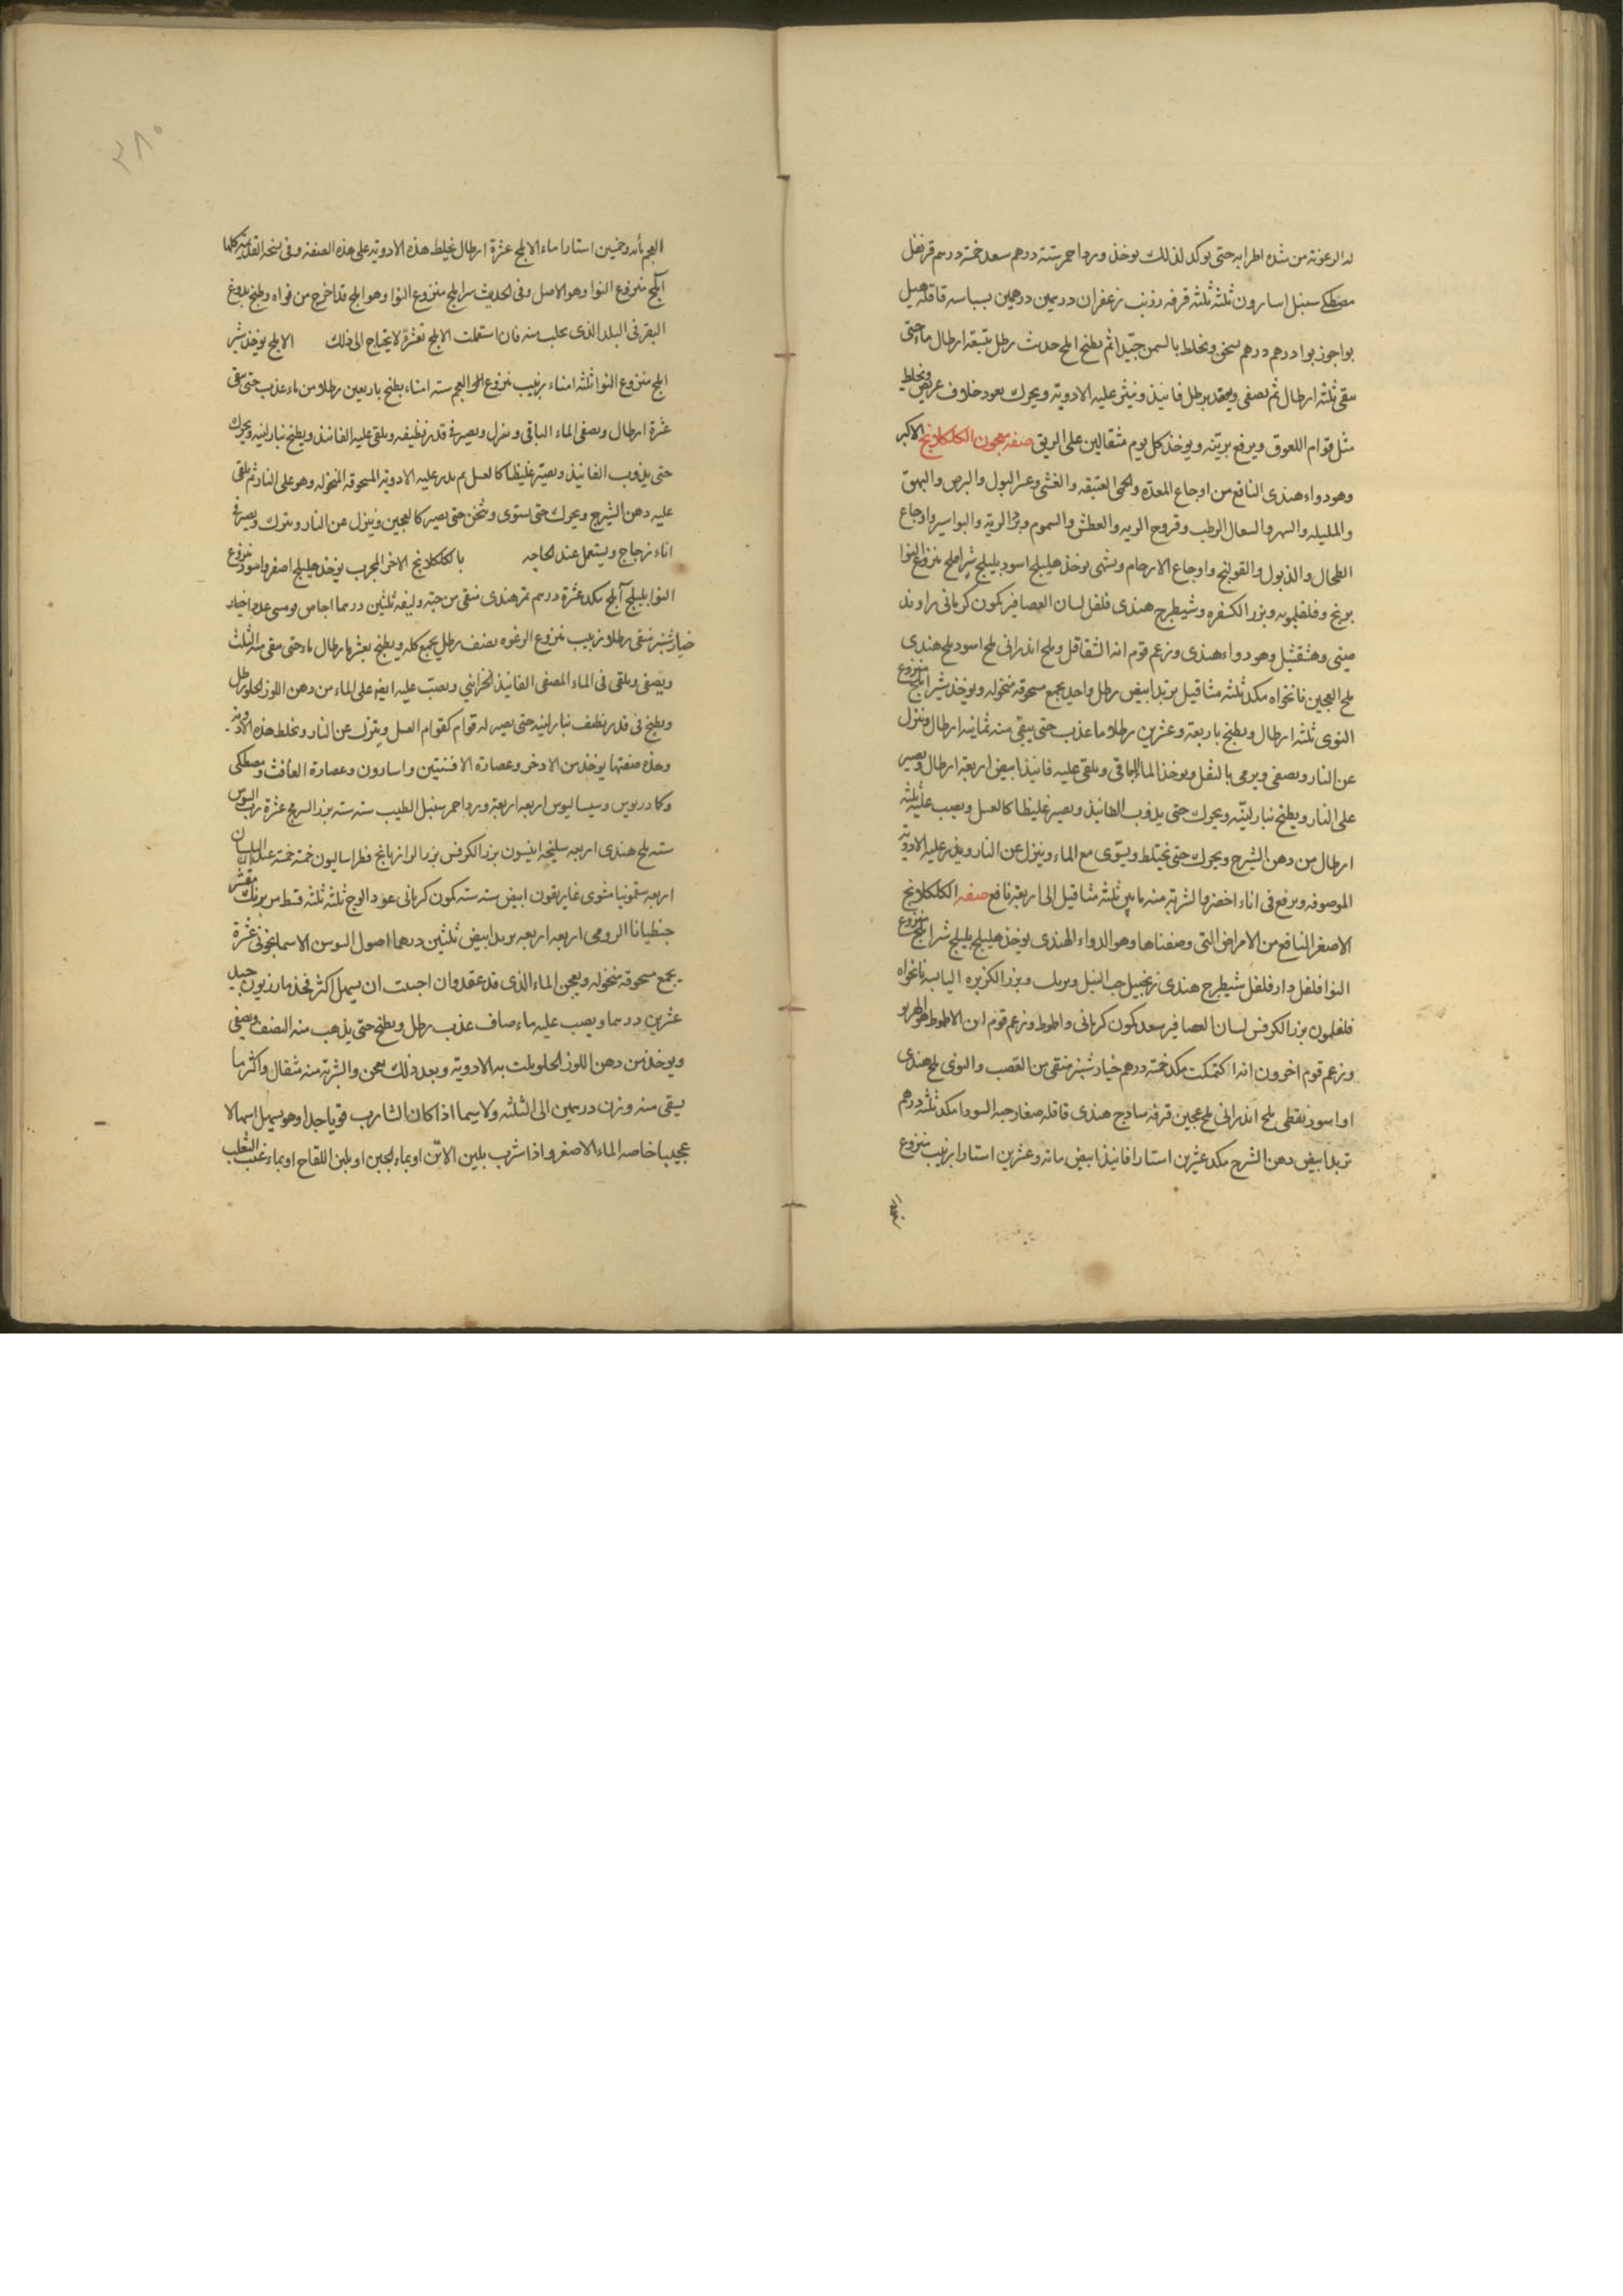 له الرعونة من شده اطرابه حتى يوكد لذلك يوخذ ورد احمر ستة درهم سعد خمسة درهم قرنفل
مصطكى سنبل اسارون ثلثه ثلثه قرفه زرنب زعفران درهمين درهمين بسباسه قاقله هيل
بوا جوزبوا درهم درهم يسحق ويخلط بالسمن جيدا ثم يطبخ املج حديث رطل بتسعة ارطال ماء حتى
يبقى ثلثه ارطال ثم يصفى ويعقد برطل فانيذ وينثر عليه الادويه ويحرك بعود خلاف عريض ويخلط
مثل قوام اللعوق ويرفع برنيه ويوخذ كل يوم مثقالين على الريق صفه معجون الكلكلانج الاكبر
وهو دواء هندى النافع من اوجاع المعدة والحمى العتيقه والغشى وعسر البول والبرص والبهق
والمليله والسهر والسعال الرطب وقروح الريه والعطش والسموم وبرد الرية والبواسير واوجاع
الطحال والذبول والقولنج واوجاع الارحام وتشهى يوخذ هليلج اسود بليلج شير املج منزوع النوا
برنج وفلفلمويه وبزر الكسفره وشيطرج هندى فلفل لسان العصافير كمون كرمانى راوند
صينى وهشقيثل وهو دواء هندى وزعم قوم انه الشقاقل وملح اندرانى ملح اسود ملح هندى
ملح العجين نانخواه مكد ثلثه مثاقيل تربد ابيض رطل واحد يجمع مسحوقه منخوله ويوخذ شير املج منزوع
النوى ثلثه ارطال ويطبخ باربعة وعشرين رطلا ما عذب حتى يبقى منه ثمانيه ارطال وينزل
عن النار ويصفى ويرمى بالثفل ويوخذ الماء الباقى ويلقى عليه فانيذ ابيض اربعة ارطال ويصير
على النار ويطبخ بنار لينه ويحرك حتى يذوب الفانيذ ويصير غليظا كالعسل ويصب عليه ثلثه
ارطال من دهن الشيرج ويحرك حتى يختلط ويستوى مع الماء وينزل عن النار ويذر عليه الادويه
الموصوفه ويرفع فى اناء اخضر والشربه منه ما بين ثلثه مثاقيل الى اربعة نافع صفه الكلكلانج
الاصغر النافع من الامراض التى وصفناها وهو الدواء الهندى يوخذ هليلج بليلج شير املج منزوع
النوا فلفل دار فلفل شيطرج هندى زنجبيل حب النيل وبرنك وبزر الكزبره اليابسه نانخواه
فلفلمون بزر الكرفس لسان العصافير سعد كمون كرمانى واطموط وزعم قوم ان الاطموط هو
وزعم قوم اخرون انه اكتمكت مكد خمسة درهم خيارشنبر منقى من القصب والنوى ملح هندى
او اسود نفطى ملح اندرانى ملح عجين قرفه ساذج هندى قاقله صغار حبه السودا مكد ثلثه درهم
تربد ابيض دهن الشيرج مكد عشرين استارا فانيذ ابيض مائه وعشرين استارا زبيب منزوع
العجم
٣٨٠
العجم مأه وخمسين استارا ماء الاملج عشرة ارطال يخلط هذه الادويه على هذه الصفه وفى نسخه القديمه كلها
املج منزوع النوا وهو الاصل وفى الحديث شير املج منزوع النوا وهو املج قد اخرج من نواه وطبخ بدوغ
البقر فى البلد الذى يجلب منه فان استعملت الاملج تقشره لا يحتاج الى ذلك الاملج يوخذ شير
املج منزوع النوا ثلثه امناء زبيب منزوع العجم سته امناء يطبخ باربعين رطلا من ماء عذب حتى يبقى
عشرة ارطال ويصفى الماء الباقى وينزل ويصير فى قدر نظيفه ويلقى عليه الفانيذ ويطبخ بنار لينه ويحرك
حتى يذوب الفانيذ ويصير غليظا كالعسل ثم يذر عليه الادويه المسحوقه المنخوله وهو على النار ثم يلقى
عليه دهن الشيرج ويحرك حتى يستوى ويثخن حتى يصير كالعجين وينزل عن النار ويترك ويصير فى
اناء زجاج ويستعمل عند الحاجه باب الكلكلانج الاخر المجرب يوخذ هليلج اصفر واسود منزوع
النوا بليلج آملج مكد عشرة درهم تمر هندى منقى من حبه وليفه ثلثين درهما اجاص عدد
خيارشنبر منقى رطلا زبيب منزوع الرغوه نصف رطل يجمع كله ويطبخ بعشر ارطال ماء حتى يبقى منه الثلث
ويصفى ويلقى فى الماء المصفى الفانيذ الخزاينى ويصب عليه ايضا على الماء من دهن اللوز الحلو رطل
ويطبخ فى قدر نظيف بنار لينه حتى يصير له قوام كقوام العسل وينزل عن النار ويخلط هذه الادويه
وهذه صفتها يوخذ من الاذخر وعصارة الافسنتين واسارون وعصارة الغافث ومصطكى
وكمادريوس وسيساليوس اربعه اربعة ورد احمر سنبل الطيب سته سته بزر السريمج عشرة رب السوس
سته ملح هندى اربعه سليخه انيسون بزر الكرفس بزر الرازيانج فطراساليون خمسة خمسة عيدان البلسان
اربعه سقمونيا مشوى غاريقون ابيض سته سته كمون كرمانى عود الوج ثلثه ثلثه قسط مر برنك مقشر
جنطيانا الرومى اربعه اربعه تربد ابيض ثلثين درهما اصول السوسن الاسمانجونى عشرة
يجمع مسحوقه منخوله ويعجن الماء الذى قد عقد وان احببت ان يسهل اكثر فخذ مازريون جيد
عشرين درهما ويصب عليه ماء صاف عذب رطل ويطبخ حتى يذهب منه النصف ويصفى
ويوخذ من دهن اللوز الحلو يلت به الادويه وبعد ذلك يعجن والشربه منه مثقال واكثرها
يسقى منه وزن درهمين الى الثلثه ولا سيما اذا كان الشارب قويا جدا وهو يسهل اسهالا
عجيبا خاصه الماء الاصفر واذا شرب بلبن الاتن او بماء الجبن او بلبن اللقاح او بماء عنب الثعلب